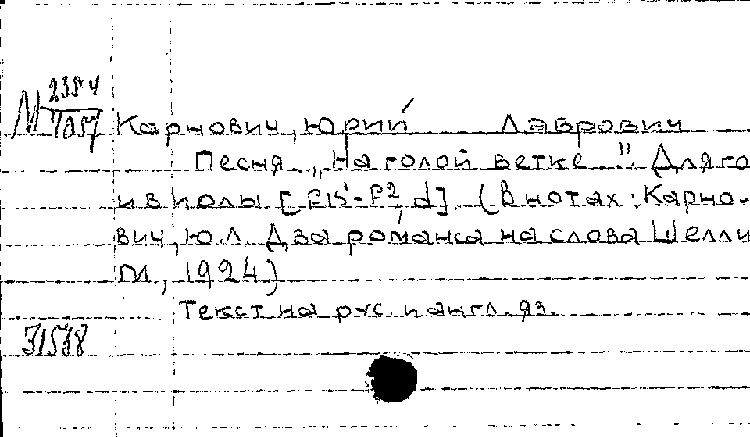 М 2384/7057
Карнович, Юрий Лаврович
Песня „На голой ветке...". Для го
и виолы [ - F², d]. (В нотах: Карно-
вич, Ю.Л. Два романса на слова Шелли
М., 1924)
Текст на рус. и англ. яз.
31538